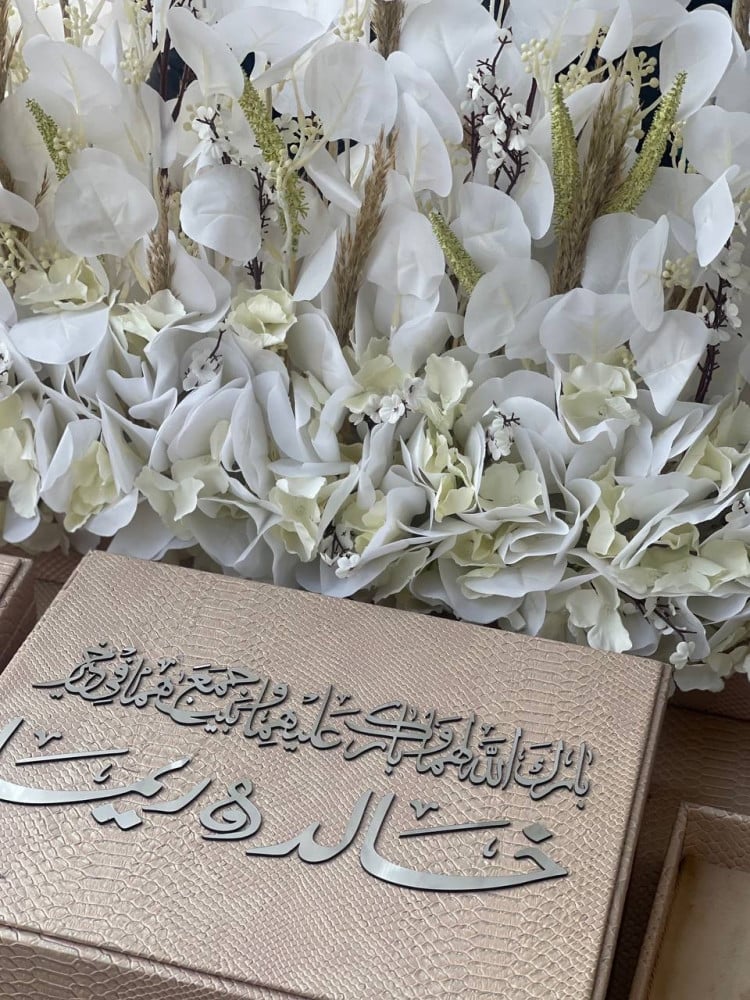 بارك الله لهما وبارك عليهما وجمع بينهما في خير
خالد و ريما